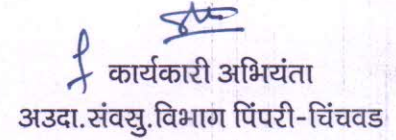 कार्यकारी अभियंता
अउदा.संवसु.विभाग पिंपरी-चिंचवड